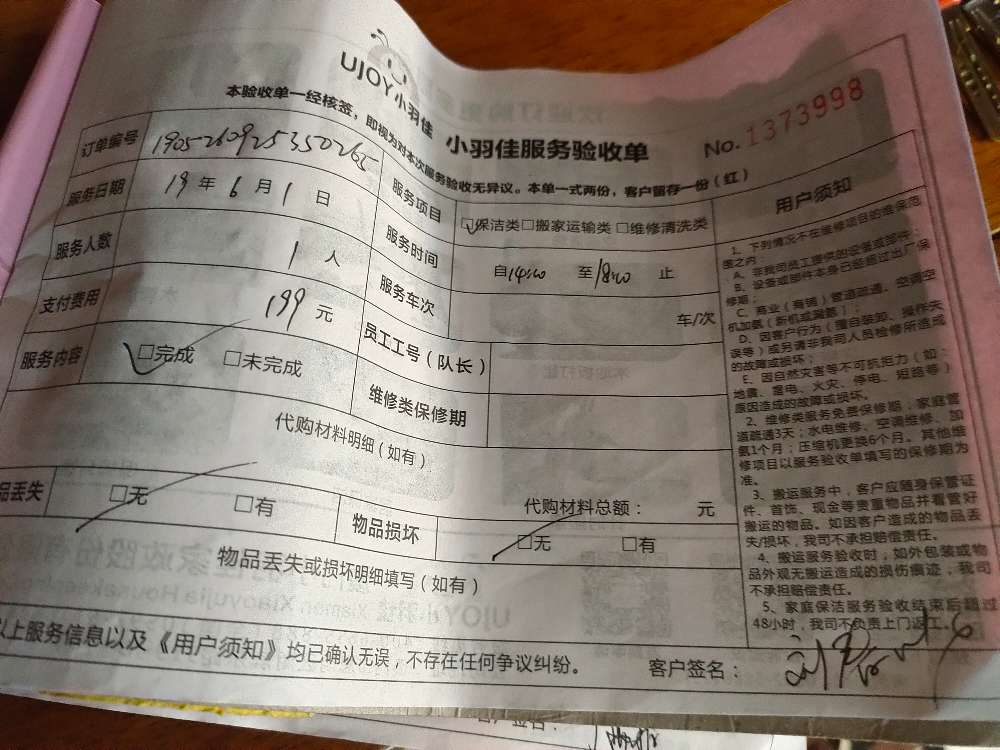 UJOY小羽佳
小羽佳服务验收单
No. 1373998
本验收单一经核签，即视为对本次服务验收无异议。本单一式两份，客户留存一份（红）
订单编号
190526092535026
服务项目
☐保洁类☐搬家运输类☐维修清洗类
服务日期
19年6月1日
服务时间
自14:00 至18:00 止
服务人数
1人
服务车次
车/次
支付费用
199元
员工工号（队长）
服务内容
☐完成 ☐未完成
维修类保修期
代购材料明细（如有）
代购材料总额： 元
品丢失
☐无 ☐有
物品损坏
☐无 ☐有
物品丢失或损坏明细填写（如有）
以上服务信息以及《用户须知》均已确认无误，不存在任何争议纠纷。
客户签名：
用户须知
1、下列情况不在维修项目的维保范
围之内：
A、非我司员工提供的设备或部件；
B、设备或部件本身已经超过出厂保
修期；
C、商业（商铺）管道疏通、空调空
机加氨（新机或漏氨）；
D、因客户行为（擅自装卸、操作失
误等）或另请非我司人员检修所造成
的故障或损坏；
E、因自然灾害等不可抗拒力（如：
地震、雷电、火灾、停电、短路等）
原因造成的故障或损坏。
2、维修类服务免费保修期：家庭管
道疏通3天；水电维修、空调维修、加
氨1个月；压缩机更换6个月。其他维
修项目以服务验收单填写的保修期为
准。
3、搬运服务中，客户应随身保管证
件、首饰、现金等贵重物品并看管好
搬运的物品。如因客户造成的物品丢
失/损坏，我司不承担赔偿责任。
4、搬运服务验收时，如外包装或物
品外观无搬运造成的损伤痕迹，我司
不承担赔偿责任。
5、家庭保洁服务验收结束后超过
48小时，我司不负责上门返工。
客户签名：